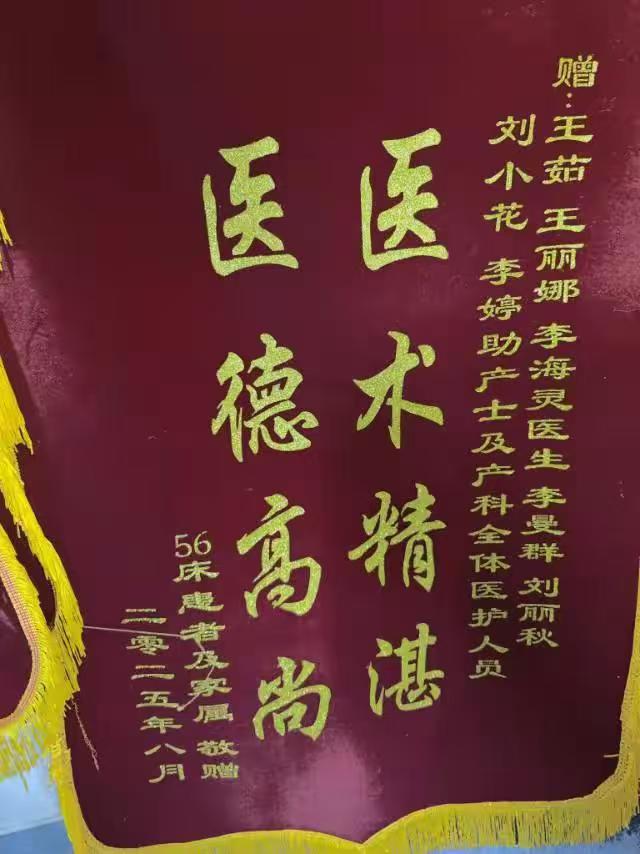 赠:王茹 王丽娜 李海灵医生 李曼群 刘丽秋
刘小花 李婷助产士及产科全体医护人员
医术精湛
医德高尚
56床患者及家属 敬赠
二零二五年八月